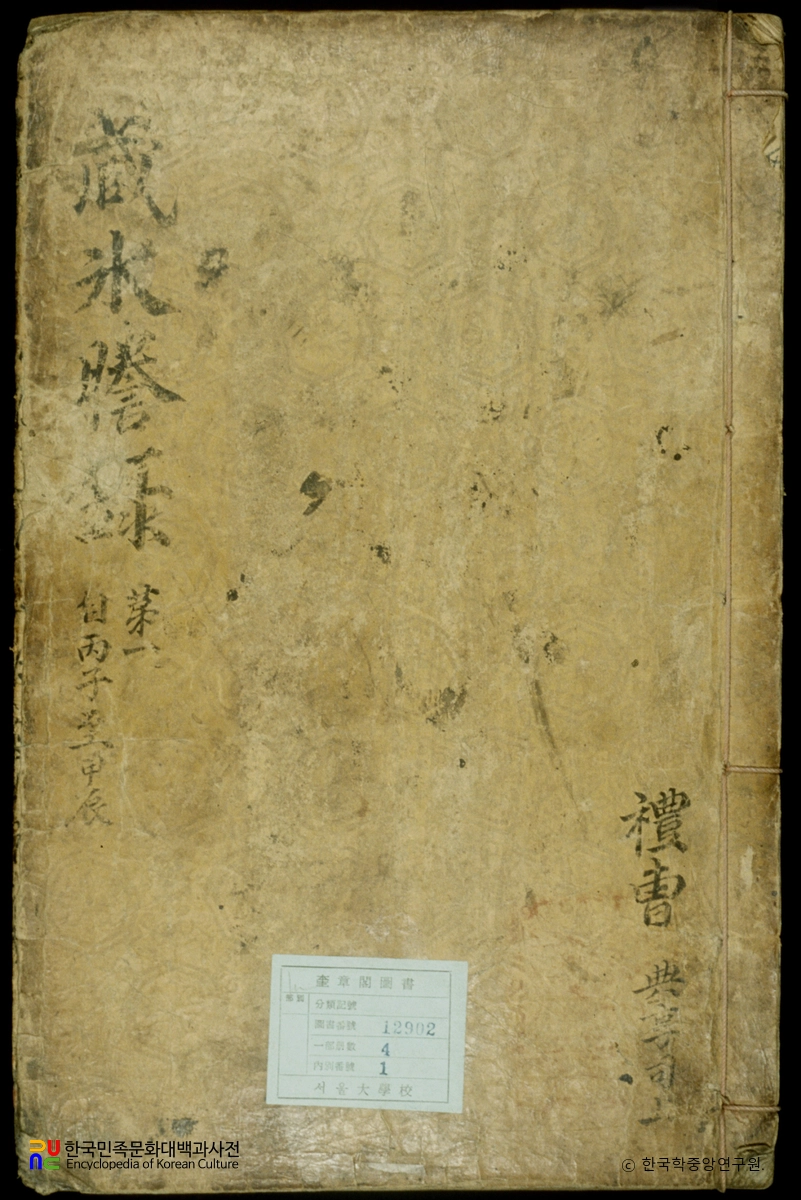 禮曺 典享司上
藏氷謄錄
第一
自丙子至甲辰
奎章閣圖書
分類記號
圖書番號 12902
一部冊數 4
內冊番號 1
서울大學校
한국민족문화대백과사전
Encyclopedia of Korean Culture
© 한국학중앙연구원.